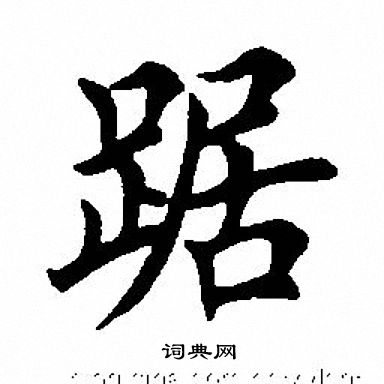 踞
词典网